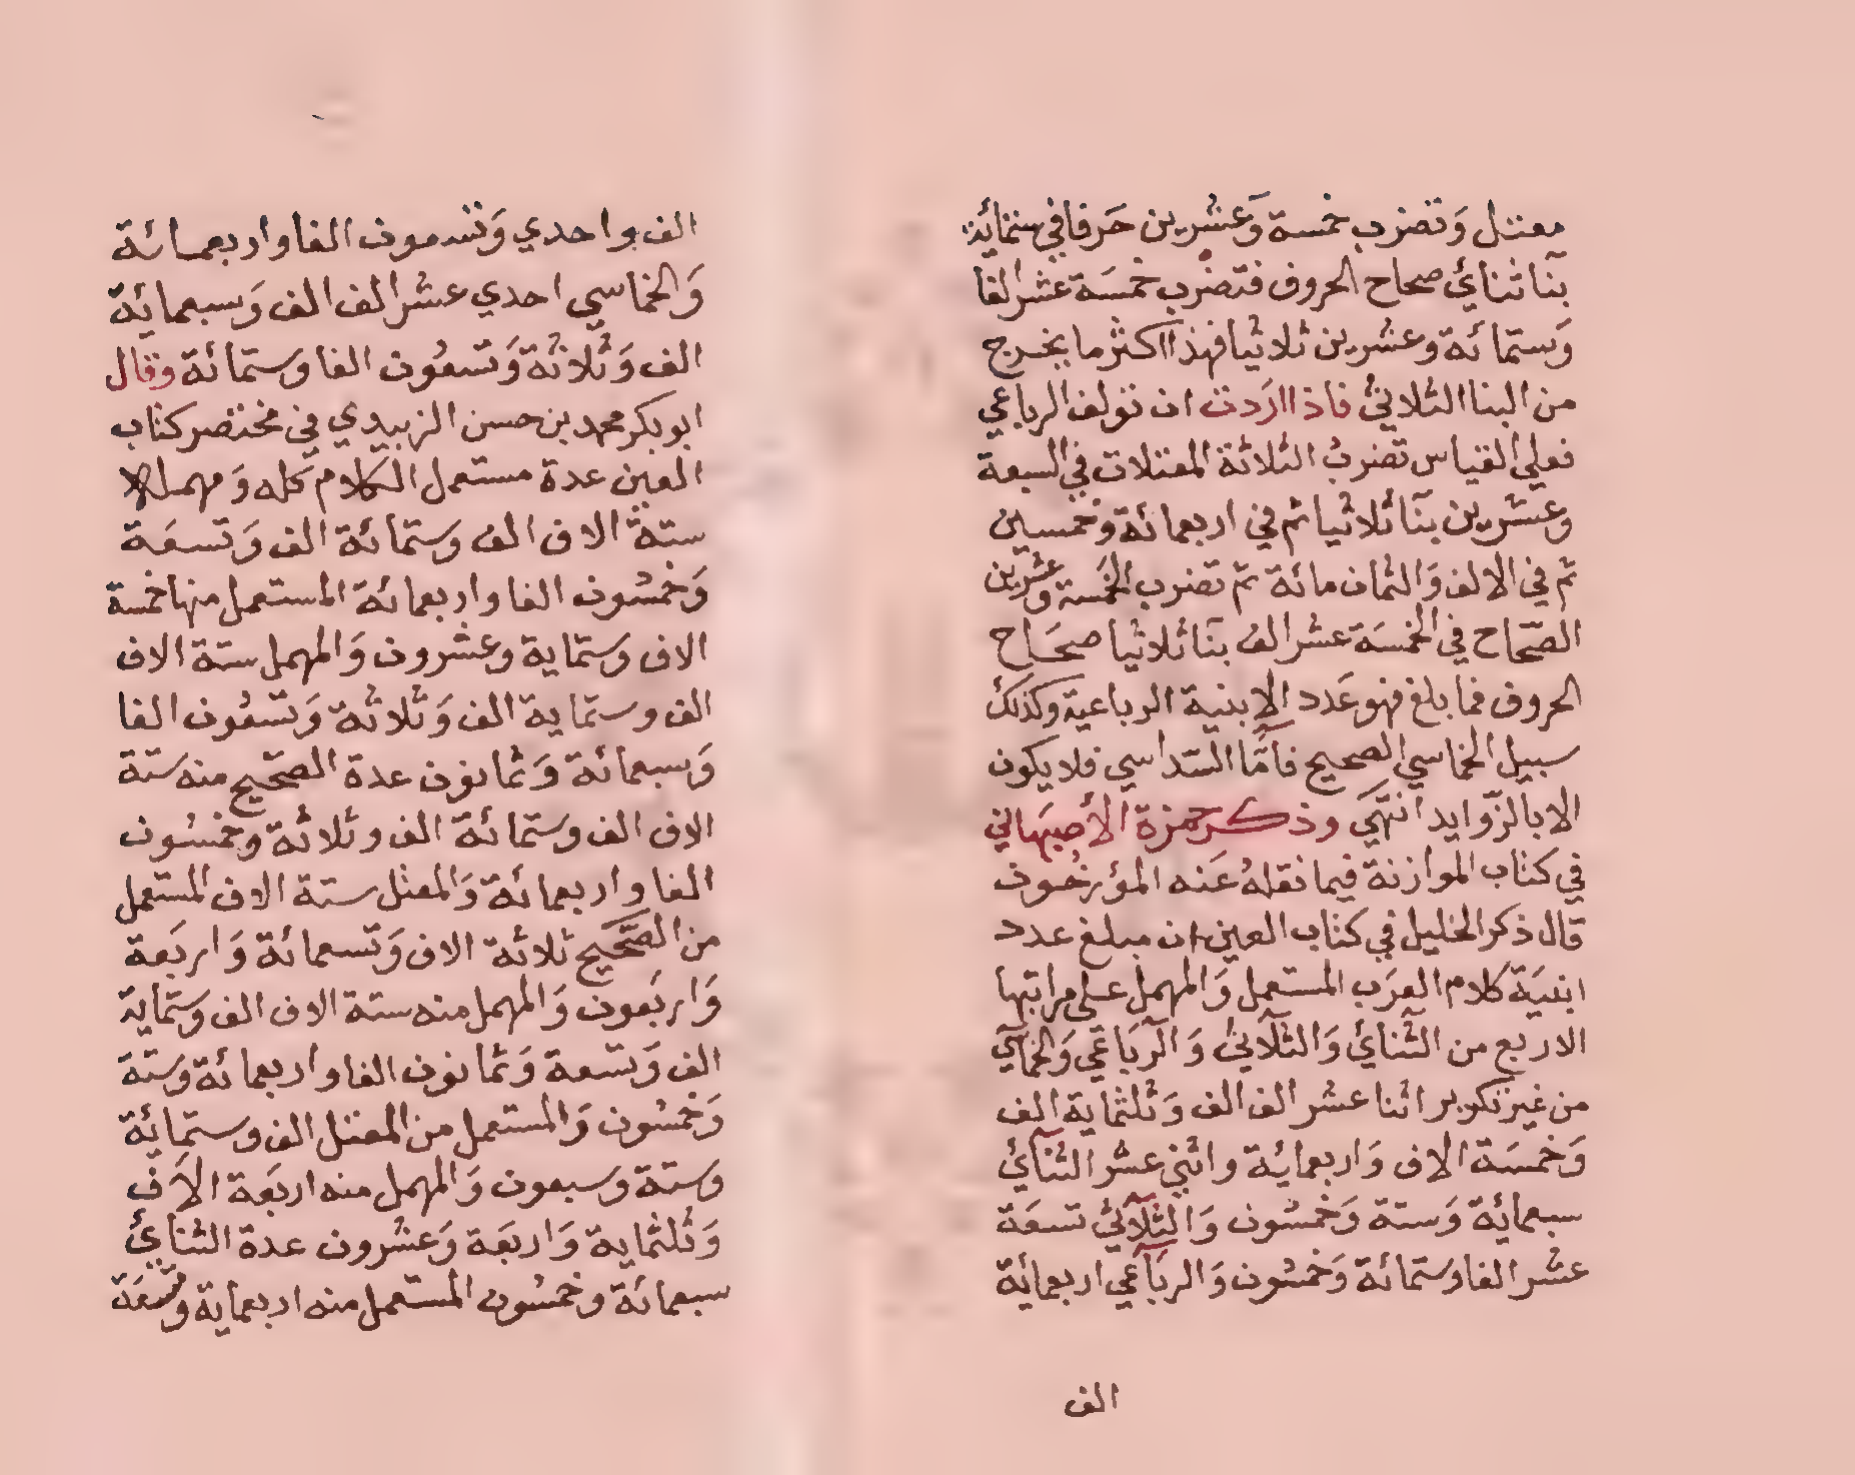 معتل وَتضرب خمسة وَعشرين حَرفا في ستمائة
بنا ثنائي صحاح الحروف فتضرب خمسَة عشر الفا
وَستمائة وعشرين ثلاثيا فهذا اكثر ما يخرج
من البنا الثلاثي فاذا ارَدت ان تولف الرباعي
فعلي القياس تضربُ الثلاثة المعتلات في السبعة
وعشرين بنَا ثلاثيا ثم في اربعمائة وخمسين
ثم في الالف وَالثمان مائة ثم تضرب الخمَسة وعشرين
الصّحاح في الخمسَة عشر الف بنَا ثلاثيا صحَاح
الحروف فما بلغ فهو عَدد الابنية الرباعية وكذلك
سبيل الخماسي الصحيح فامّا السّداسي فلا يكون
الا بالزّوايد انتهَي وذكر حمزة الأصبهاني
في كتاب الموازنة فيما نقلهُ عَنه المؤرخُون
قال ذكر الخليل في كتاب العين ان مبلغ عدد
ابنيَة كلام العرَب المستعمل وَالمهمل على مراتبها
الاربع من الثّنائي وَالثلَاثي وَالرّبَاعَي وَالخماسي
من غير تكرير اثنا عشر الف الف وَثلثماية الف
وَخمسَة الاف وَاربعمائة واثني عشر الثنَائي
سبعمائة وَستة وَخمسُون وَالثلَاثي تسعَة
عشر الفا وستمائة وَخمسُون وَالربَاعي اربعمائة
الف
الف واحدي وَتسعون الفا واربعمائة
وَالخماسي احدي عشر الف الف وَسبعمائة
الف وَثلاثة وَتسعُون الفا وستمائة وقال
ابو بكر محمد بن حسن الزبيدي في مختصر كتاب
العين عدة مستعمل الكلام كله وَمهمله
ستة الاف الف وستمائة الف وَتسعَة
وَخمسُون الفا واربعمائة المستعمل منها خمسة
الاف وستماية وعشرون وَالمهمل ستة الاف
الف وستماية الف وَثلاثة وَتسعُون الفا
وَسبعمائة وَثمانون عدة الصّحيح منه ستة
الاف الف وستمائة الف وثلاثة وخمسُون
الفا واربعمائة وَالمعتل ستة الاف المستعمل
من الصَّحيح ثلاثة الاف وَتسعمائة وَاربَعة
وَاربَعون وَالمهمل منه ستة الاف الف وستماية
الف وَتسعة وَثمانون الفا واربعمائة وستة
وَخمسُون وَالمستعمل من المعتل الف وستمايئة
وستة وسبعون وَالمهمل منه اربَعة الاَف
وَثلثماية وَاربعَة وَعشرون عدة الثنائي
سبعمائة وخمسُون المستعمل منه اربعماية وتسعَة